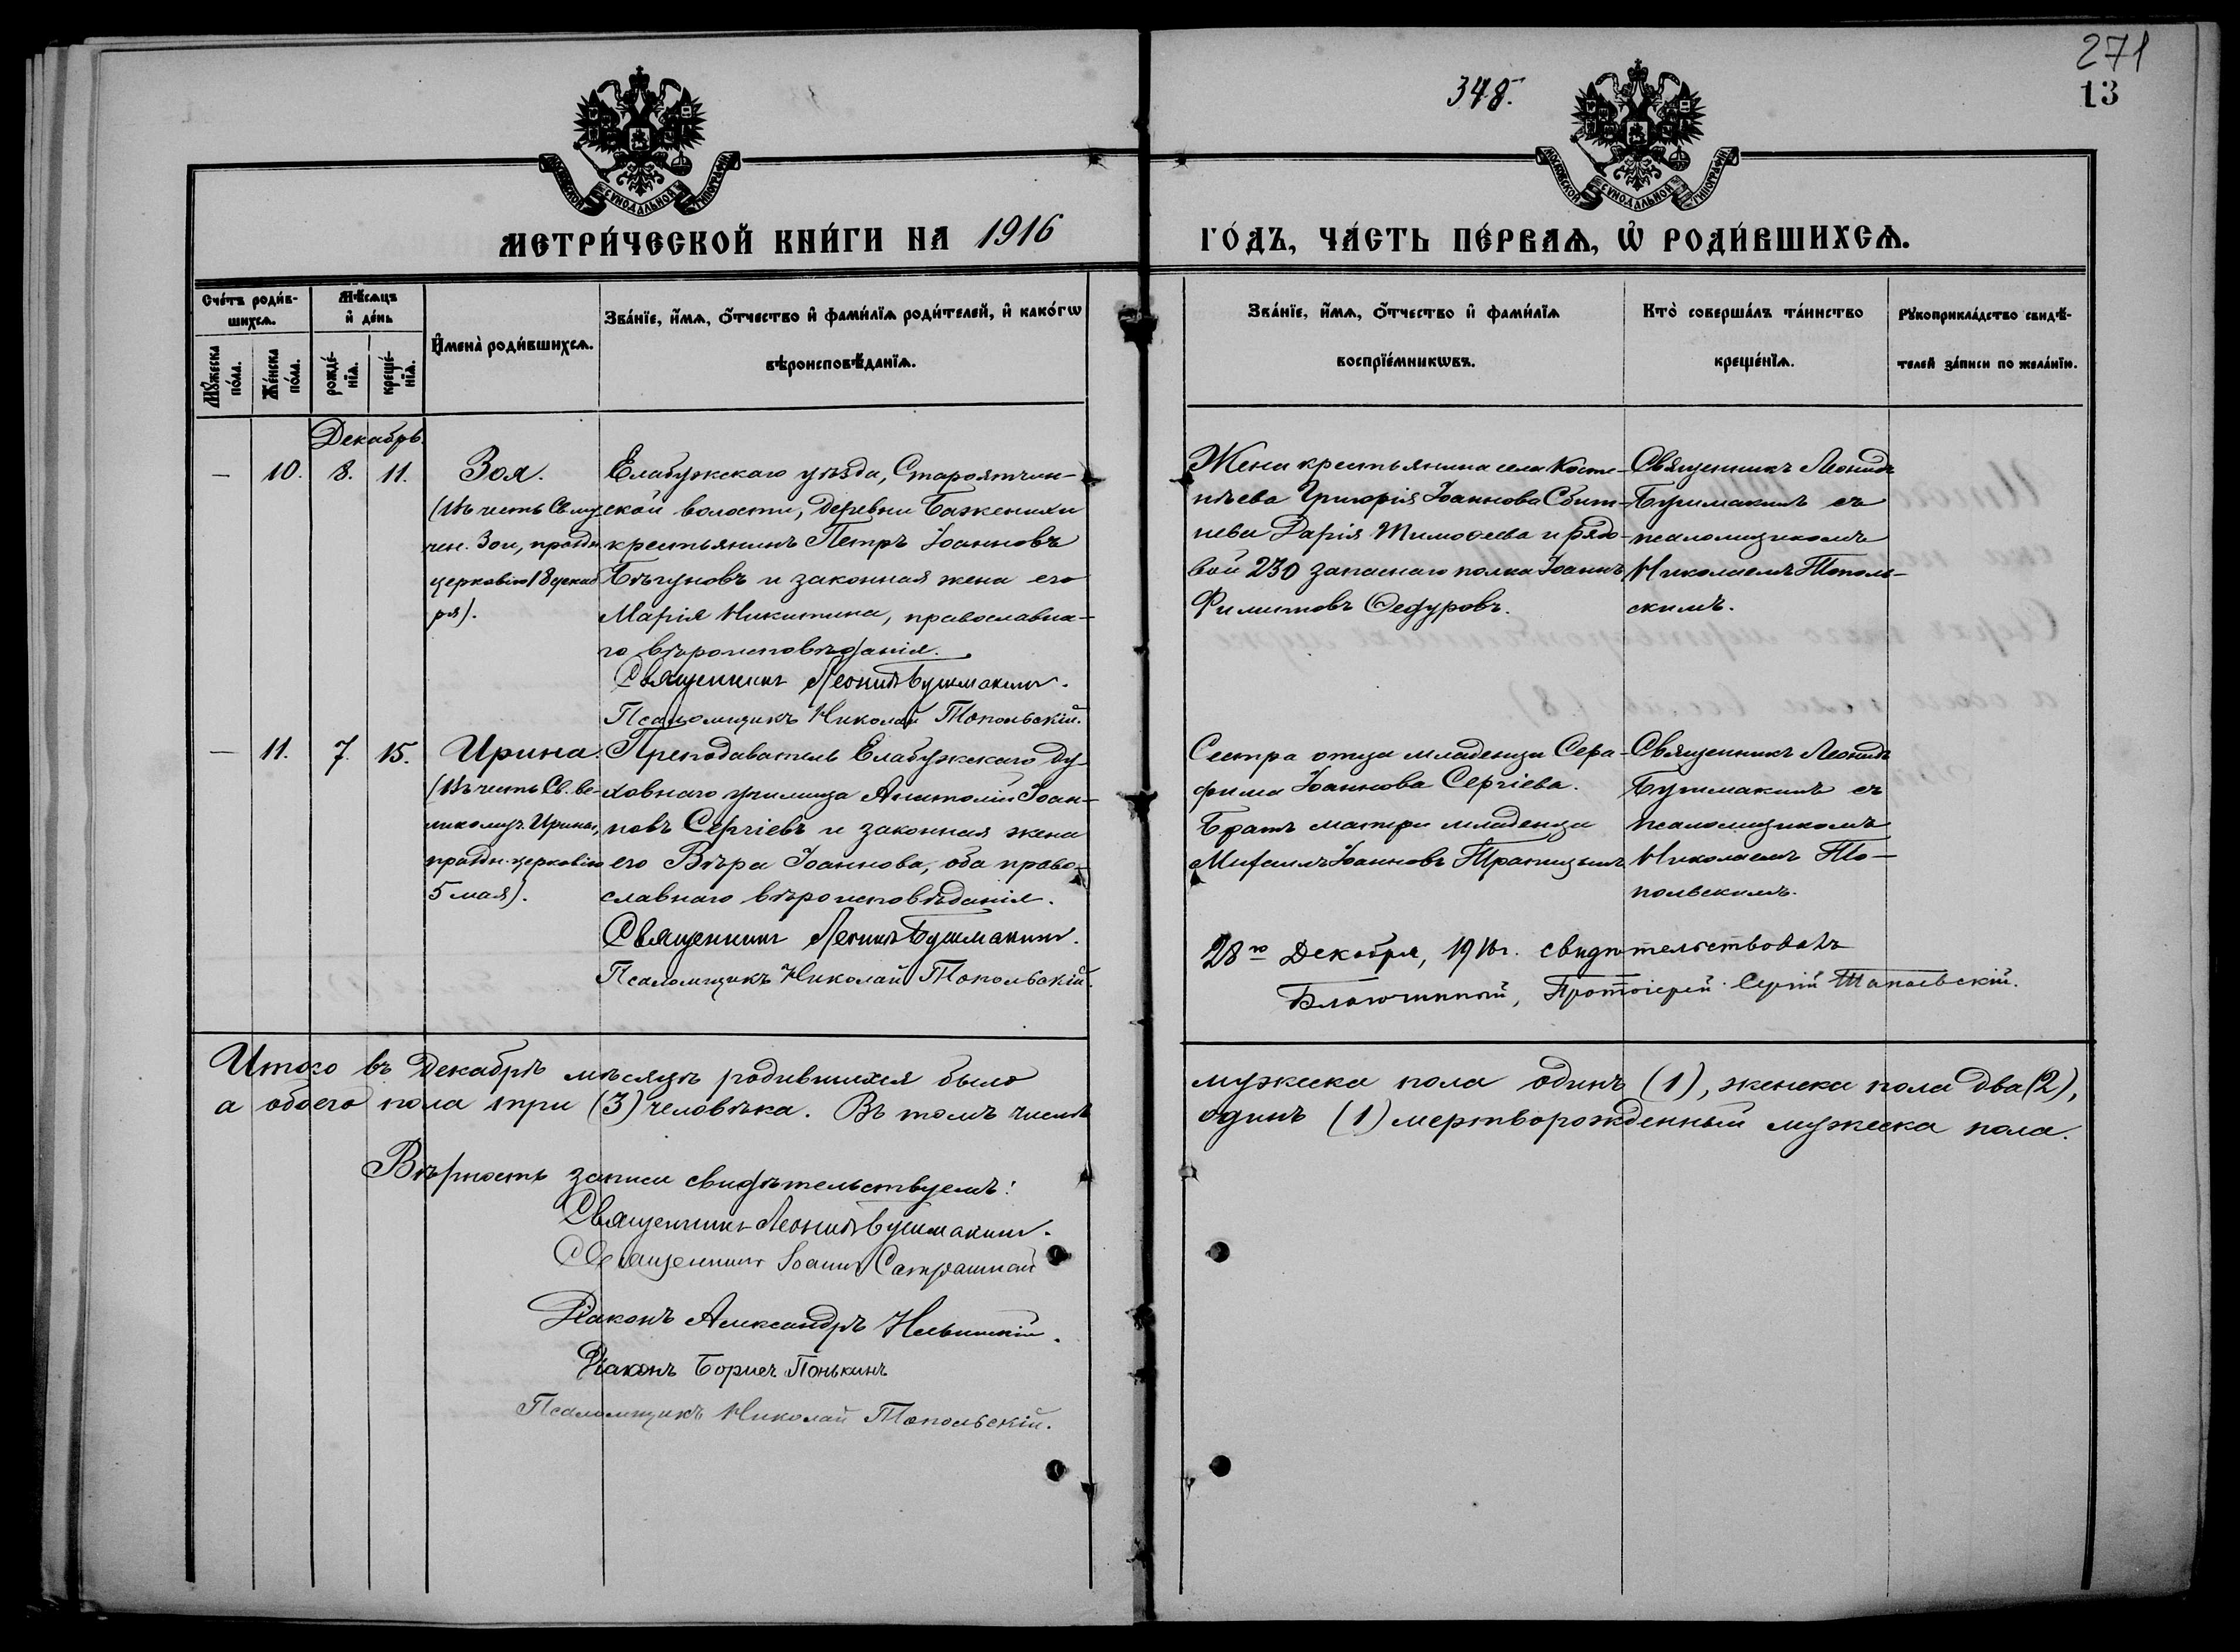 271
13
348.
МОСКОВСКОЙ СѴНОДАЛЬНОЙ ТИПОГРАФІИ
МОСКОВСКОЙ СѴНОДАЛЬНОЙ ТИПОГРАФІИ
МЕТРИ́ЧЕСКОЙ КНИ́ГИ НА 1916
ГО́ДЪ, ЧА́СТЬ ПЕ́РВАѦ, Ѽ РОДИ́ВШИХСѦ.
Сче́тъ роди́в-
шихсѧ.
Мꙋ́жеска
по́ла.
Же́нска
по́ла.
Мѣ́сѧцъ
и҆ де́нь
рожде́-
нїѧ.
креще́-
нїѧ.
И҆мена̀ роди́вшихсѧ.
Зва́нїе, и҆́мѧ, о҆́тчество и҆ фами́лїѧ роди́телей, и҆ како́гѡ
вѣроисповѣ́данїѧ.
Зва́нїе, и҆́мѧ, о҆́тчество и҆ фами́лїѧ
воспрїе́мникѡвъ.
Кто̀ соверша́лъ та́инство
креще́нїѧ.
Рꙋкоприкла́дство свидѣ́-
телей за́писи по жела́нїю.
Декабрь.
— 10. 8. 11.
Зоя.
(въ честь Св. му-
чен. Зои, праздн.
церковію 18 декаб-
ря).
Елабужскаго уѣзда, Староятчин-
ской волости, деревни Бажениxи
крестьянинъ Петръ Іоанновъ
Бѣгуновъ и законная жена его
Марія Никитина, православна-
го вѣроисповѣданія.
Священникъ Леонидъ Бушмакинъ.
Псаломщикъ Николай Топольскій.
Жена крестьянина села Косте-
нѣева Григорія Іоаннова Сбит-
нева Дарія Тимоѳеева и рядо-
вой 230 запаснаго полка Іоаннъ
Филиповъ Федуровъ.
Священникъ Леонидъ
Бушмакинъ съ
псаломщикомъ
Николаемъ Тополь-
скимъ.
— 11. 7. 15.
Ирина.
(въ честь Св. ве-
ликомуч. Ирины,
праздн. церковію
5 мая).
Преподаватель Елабужскаго ду-
ховнаго училища Анатолій Іоан-
новъ Сергіевъ и законная жена
его Вѣра Іоаннова, оба право-
славнаго вѣроисповѣданія.
Священникъ Леонидъ Бушмакинъ.
Псаломщикъ Николай Топольскій.
Сестра отца младенца Сера-
фима Іоаннова Сергіева.
Братъ матери младенца
Михаилъ Іоанновъ Траницынъ
Священникъ Леонидъ
Бушмакинъ съ
псаломщикомъ
Николаемъ То-
польскимъ.
28го Декабря, 1916г. свидѣтельствовалъ
Благочинный, Протоіерей Сергій
Итого въ Декабрѣ мѣсяцѣ родившихся было
мужеска пола одинъ (1), женска пола два (2),
а обоего пола три (3) человѣка. Въ томъ числѣ
одинъ (1) мертворожденный мужеска пола.
Вѣрность записи свидѣтельствуемъ:
Священникъ Леонидъ Бушмакинъ.
Священникъ Іоаннъ
Діаконъ Александръ
Діаконъ Борисъ Понькинъ
Псаломщикъ Николай Топольскій.